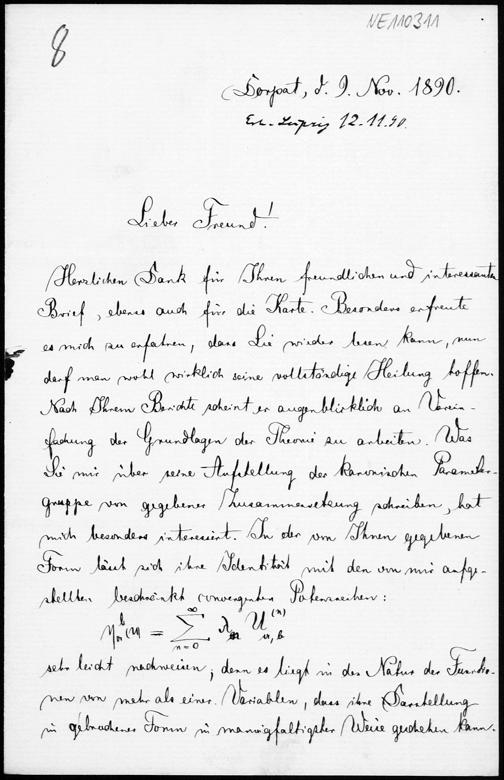 NE110311
8
Dorpat, d. 9. Nov. 1890.
Erh. Leipzig 12.11.90.
Lieber Freund!
Herzlichen Dank für Ihren freundlichen und interessanten
Brief, ebenso auch für die Karte. Besonders erfreute
es mich zu erfahren, dass Lie wieder lesen kann, nun
darf man wohl wirklich seine vollständige Heilung hoffen.
Nach Ihrem Berichte scheint er augenblicklich an Verein-
fachung der Grundlagen der Theorie zu arbeiten. Was
Sie mir über seine Aufstellung der kanonischen Parameter-
gruppe von gegebener Zusammensetzung schreiben, hat
mich besonders interessirt. In der von Ihnen gegebenen
Form lässt sich ihre Identität mit den von mir aufge-
stellten beschränkt convergenten Potenzreihen:
η (u) = ∑ n=0 ∞ λn U (n)
sehr leicht nachweisen, denn es liegt in der Natur der Funktio-
nen von mehr als einer Variablen, dass ihre Darstellung
in gebrochener Form in mannigfaltigster Weise geschehen kann.